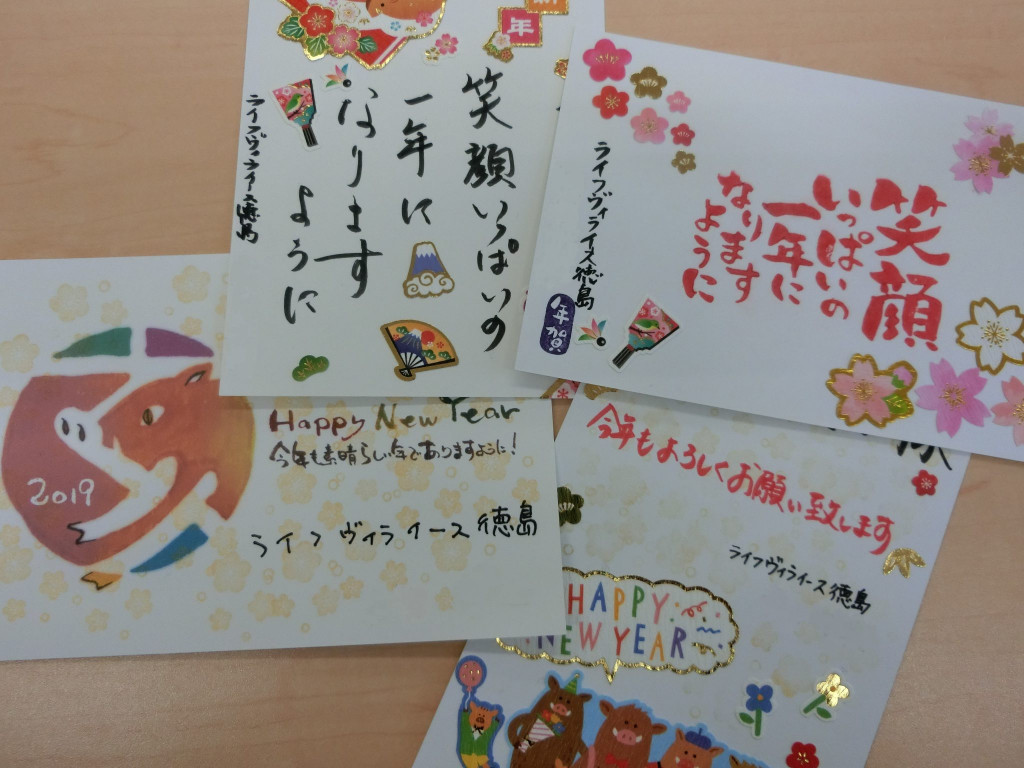 年
笑顔いっぱいの
一年に
なります
ように
ライフヴィライース徳島
笑顔
いっぱいの
一年に
なります
ように
ライフヴィライース徳島
年賀
2019
Happy New Year
今年も素晴らしい年でありますように!
ライフヴィライース徳島
今年もよろしくお願い致します
ライフヴィライース徳島
HAPPY
NEW YEAR